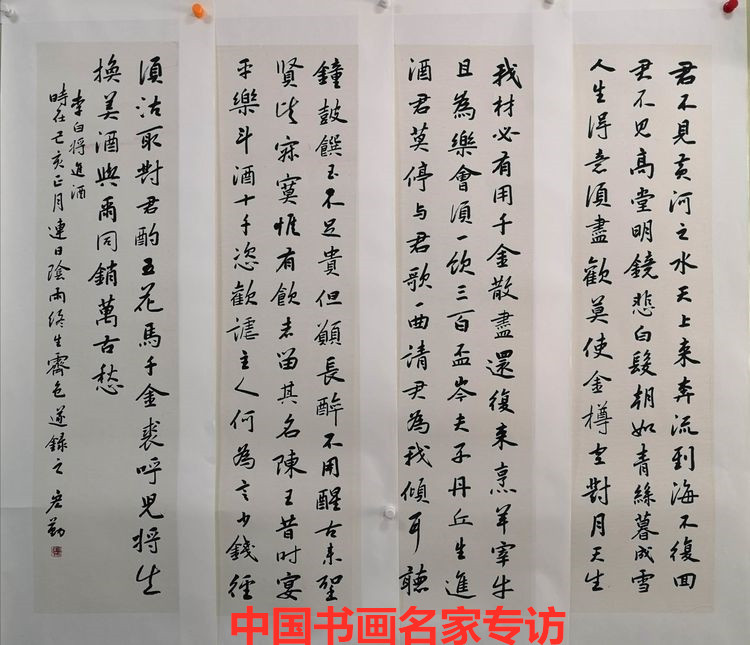 君不見黃河之水天上来奔流到海不復回
君不見高堂明鏡悲白髮朝如青絲暮成雪
人生得意須盡歡莫使金樽空對月天生
我材必有用千金散盡還復来烹羊宰牛
且為樂會須一飲三百盃岑夫子丹丘生進
酒君莫停与君歌一曲請君為我傾耳聽
鐘鼓饌玉不足貴但願長醉不用醒古来聖
賢皆寂寞惟有飲者留其名陳王昔时宴
平樂斗酒十千恣歡謔主人何為言少錢徑
須沽取對君酌五花馬千金裘呼兒將出
換美酒與爾同銷萬古愁
李白將進酒
時在己亥正月連日陰雨終生霽色遂錄之
中国书画名家专访